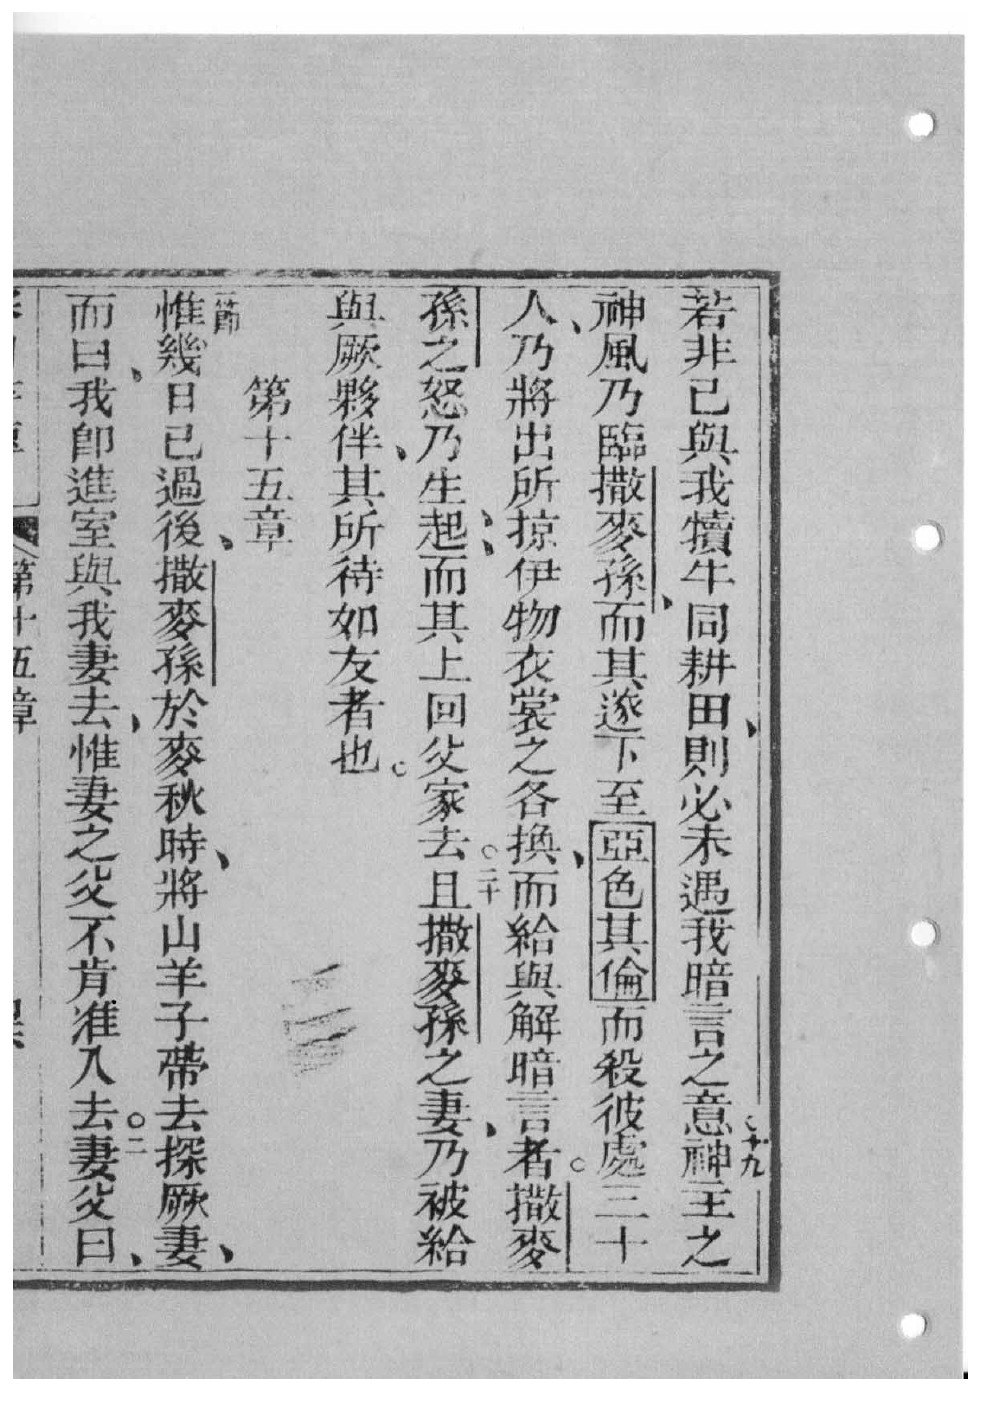 若非已與我犢牛同耕田、則必未遇我暗言之意○十九神主之
神風乃臨撒麥孫、而其遂下至亞色其倫而殺彼處三十
人、乃將出所掠伊物衣裳之各換、而給與解暗言者○撒麥
孫之怒乃生起、而其上回父家去○二十且撒麥孫之妻、乃被給
與厥夥伴、其所待如友者也○
第十五章
一節惟幾日已過後、撒麥孫於麥秋時、將山羊子帶去探厥妻、
而曰、我即進室與我妻去、惟妻之父不肯准入去○二妻父曰、
第十五章